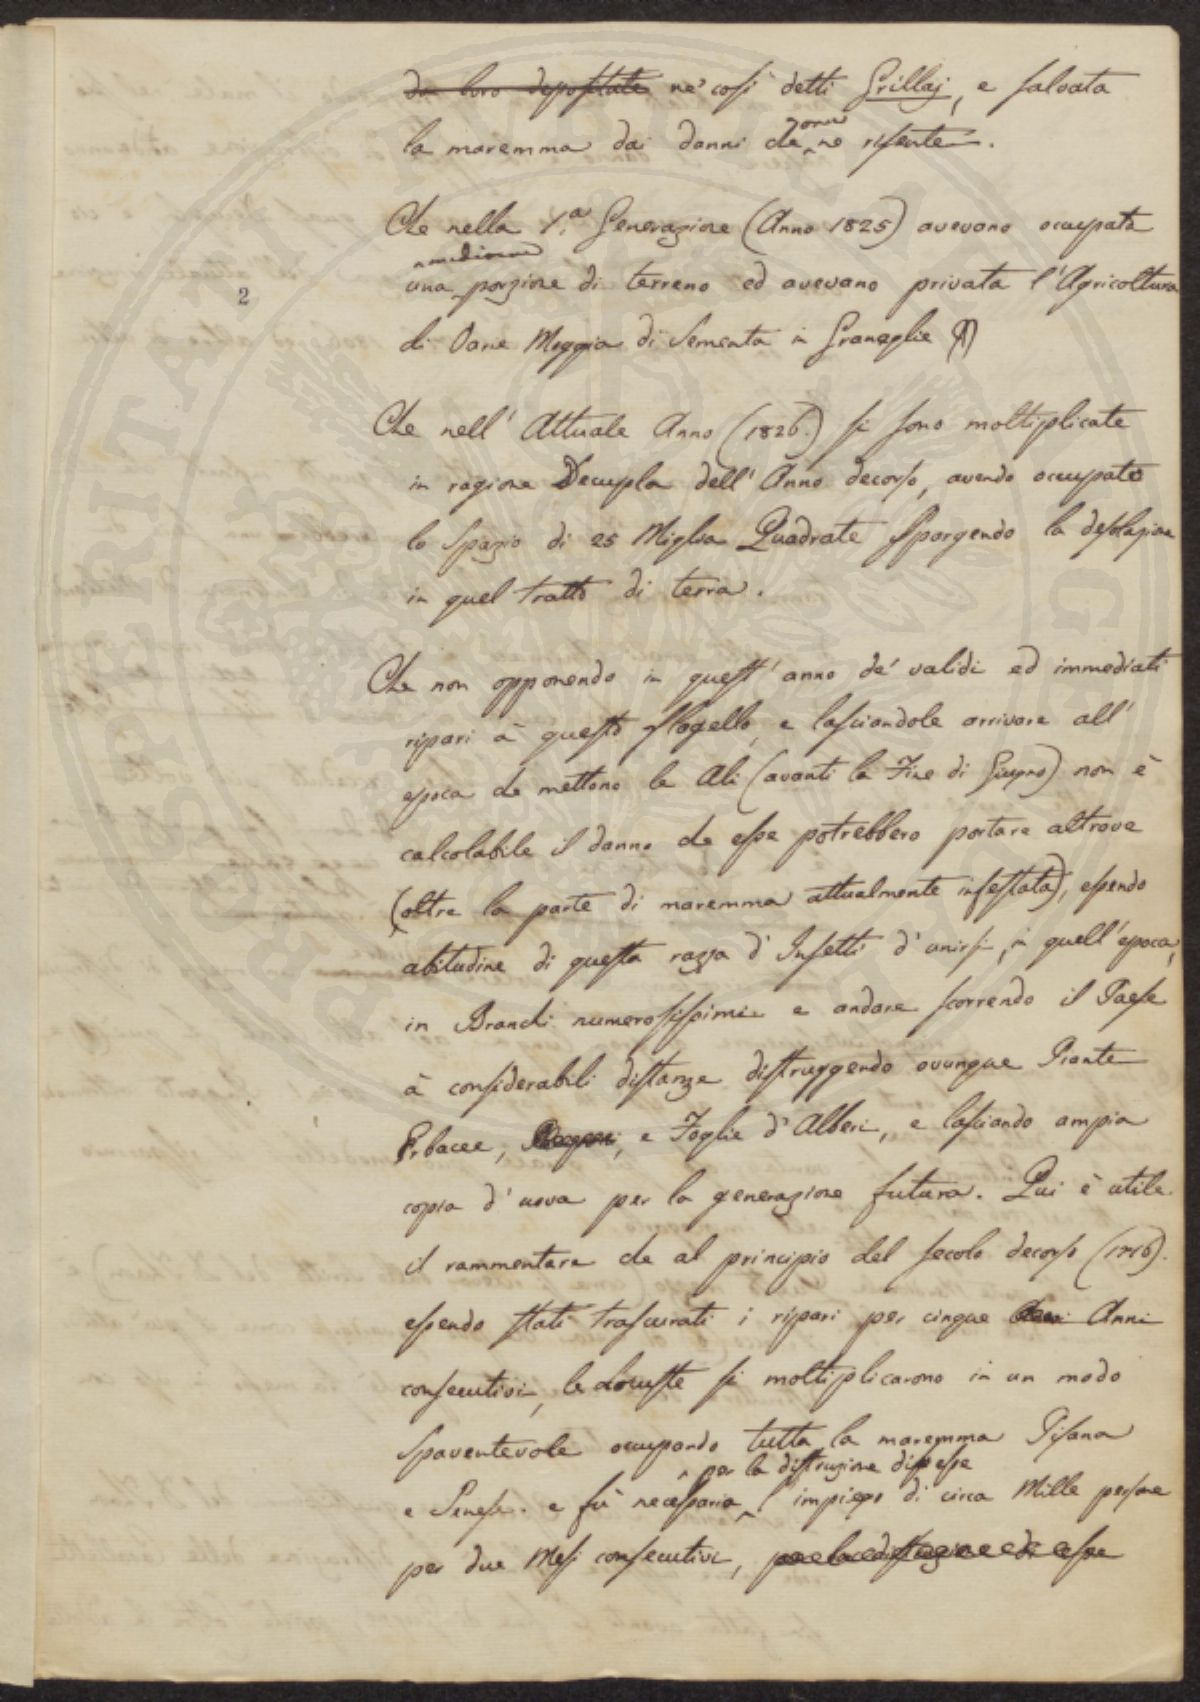 da loro depositate ne' così detti Grillaj, e salvata
la maremma dai danni che ora ne risente.
Che nella 1.a Generazione (Anno 1825) avevano occupata
una mediocre porzione di terreno ed avevano privata l'Agricoltura
2
di Varie Moggia di Sementa in Granaglie (1)
Che nell' Attuale Anno (1826.) si sono moltiplicate
in ragione Decupla dell' Anno decorso, avendo occupato
lo Spazio di 25 Miglia Quadrate Sporgendo la desolazione
in quel tratto di terra.
Che non opponendo in quest' anno de' validi ed immediati
ripari à questo flagello, e lasciandole arrivare all'
epoca che mettono le Ali (avanti la Fine di Giugno) non è
calcolabile il danno che esse potrebbero portare altrove
(oltre la parte di maremma attualmente infestata), essendo
abitudine di questa razza d' Insetti d' unirsi, in quell' epoca,
in Branchi numerosissimi e andare scorrendo il Paese
à considerabili distanze distruggendo ovunque Piante
Erbacee, e Foglie d' Alberi, e lasciando ampia
copia d' uova per la generazione futura. Qui è utile
il rammentare che al principio del secolo decorso (1716).
essendo stati trascurati i ripari per cinque Anni
consecutivi, le Locuste si moltiplicarono in un modo
Spaventevole occupando tutta la maremma Pisana
e Senese. e fù necessario per la distruzione di esse l' impiego di circa Mille persone
per due Mesi consecutivi, per la distruzione di esse